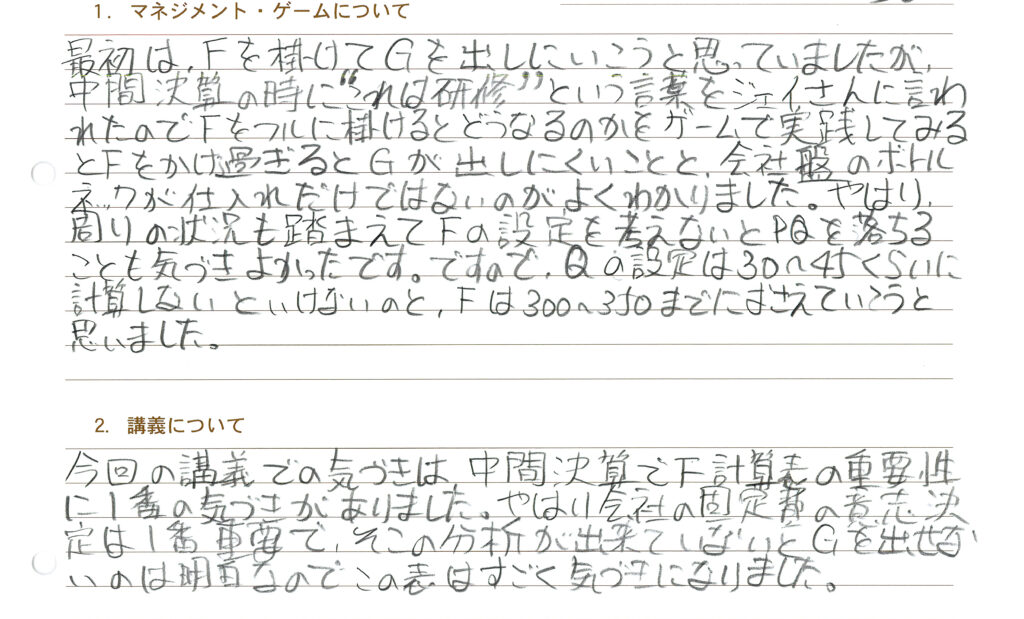 1. マネジメント・ゲームについて
最初は、Fを掛けてGを出しにいこうと思っていましたが、
中間決算の時に“これは研修”という言葉をジェイさんに言わ
れたのでFをフルに掛けるとどうなるのかをゲームで実践してみる
とFをかけ過ぎるとGが出しにくいことと、会社盤のボトル
ネックが仕入れだけではないのが、よくわかりました。やはり、
周りの状況も踏まえてFの設定を考えないとPQを落ちる
ことも気づきよかったです。ですので、Qの設定は30〜45くらいに
計算しないといけないのと、Fは300〜350までにおさえていこうと
思いました。
2. 講義について
今回の講義での気づきは、中間決算でF計算表の重要性
に1番の気づきがありました。やはり会社の固定費の意志決
定は1番重要で、そこの分析が出来ていないとGを出せな
いのは明白なのでこの表はすごく気づきになりました。